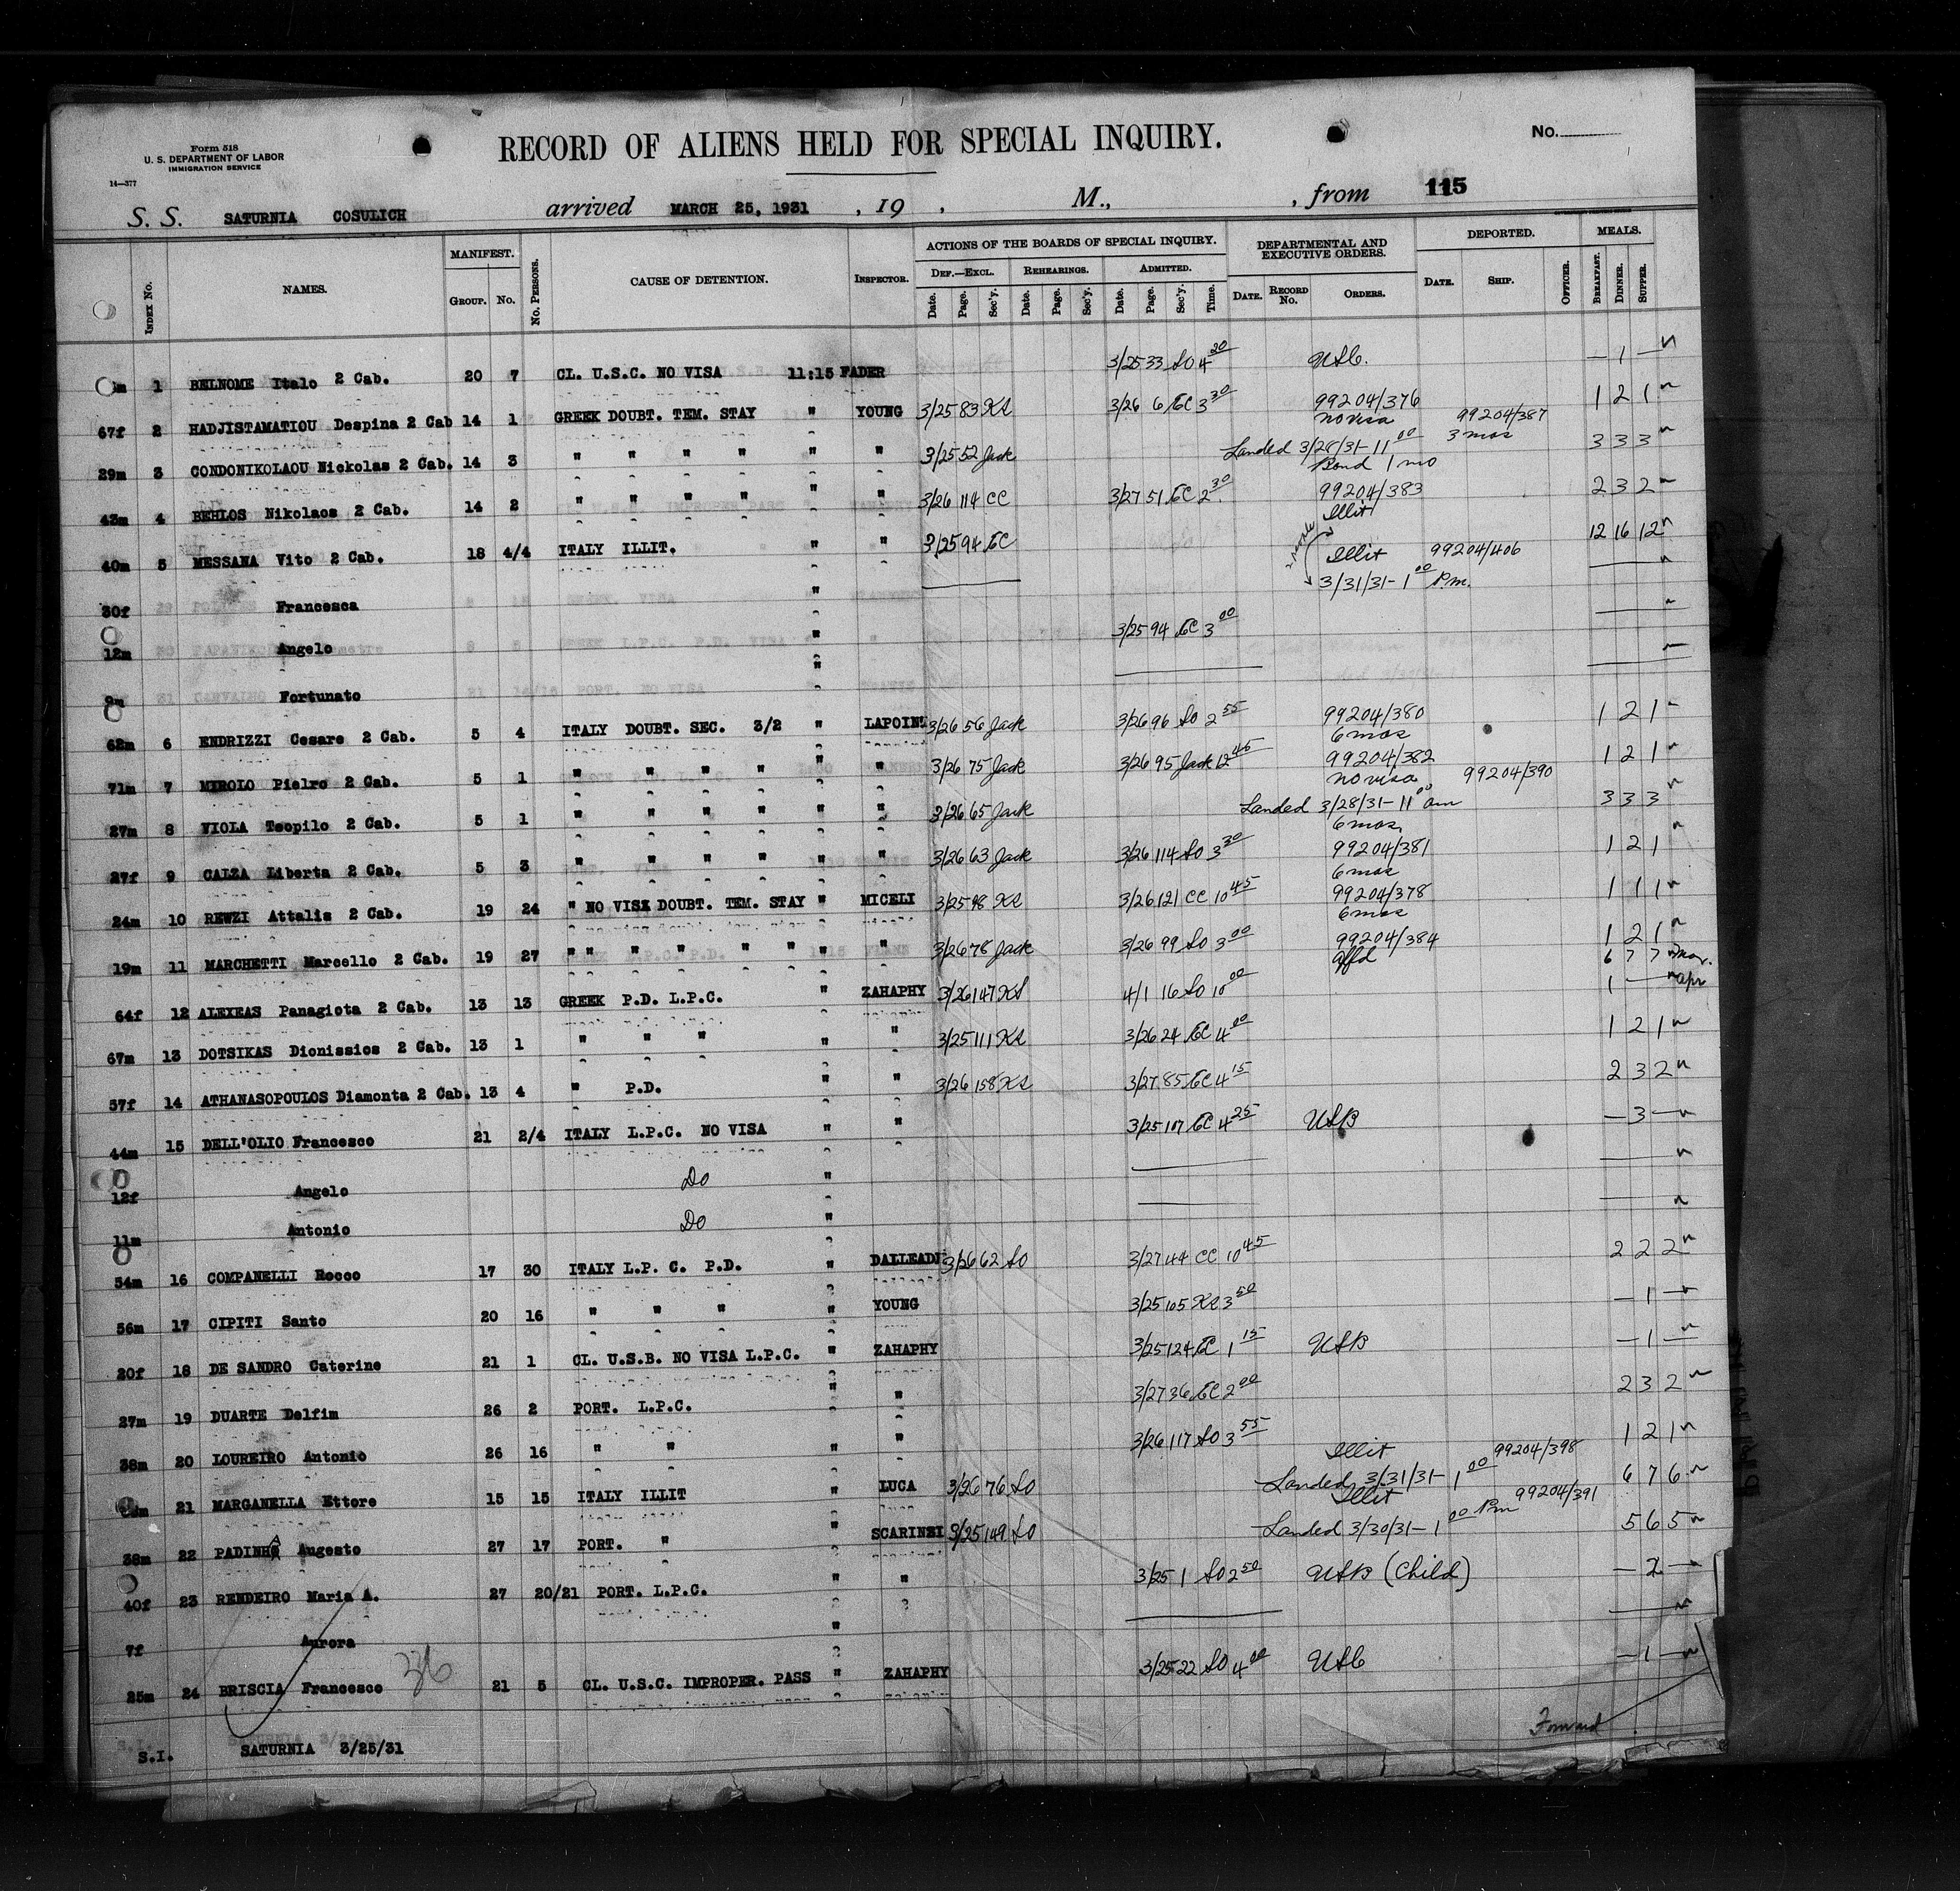 Form 518
U. S. DEPARTMENT OF LABOR
IMMIGRATION SERVICE
14—377
RECORD OF ALIENS HELD FOR SPECIAL INQUIRY.
No.
115
S. S. SATURNIA COSULICH arrived MARCH 25, 1931 , 19 , M., , from
INDEX No. NAMES. MANIFEST. GROUP. No. No. PERSONS. CAUSE OF DETENTION. INSPECTOR. ACTIONS OF THE BOARDS OF SPECIAL INQUIRY. DEF.—EXCL. Date. Page. Sec'y. REHEARINGS. Date. Page. Sec'y. ADMITTED. Date. Page. Sec'y. Time. DEPARTMENTAL AND EXECUTIVE ORDERS. DATE. RECORD No. ORDERS. DEPORTED. DATE. SHIP. OFFICER. MEALS. BREAKFAST. DINNER. SUPPER.
m 1 BELNOME Italo 2 Cab. 20 7 CL. U.S.C. NO VISA 11:15 FADER 3/25 33 SO 4 20 USC. — 1 —
67f 2 HADJISTAMATIOU Despina 2 Cab 14 1 GREEK DOUBT. TEM. STAY " YOUNG 3/25 83 KS 3/26 6 EC 3 30 99204/376 1 2 1
no visa 99204/387
29m 3 CONDONIKOLAOU Nickolas 2 Cab. 14 3 " " " " " " 3/25 52 Jack Landed 3/28/31-11 00 3 mos 3 3 3
Bond 1 mo
43m 4 BEHLOS Nikolaos 2 Cab. 14 2 " " " " " " 3/26 114 CC 3/27 51 EC 2 30 99204/383 2 3 2
Illit
40m 5 MESSANA Vito 2 Cab. 18 4/4 ITALY ILLIT. " " 3/25 94 EC Illit 99204/406 12 16 12
3/31/31-1 00 P.m.
30f Francesca "
12m Angelo " 3/25 94 EC 3 00
9m Fortunato "
62m 6 ENDRIZZI Cesare 2 Cab. 5 4 ITALY DOUBT. SEC. 3/2 " LAPOINT 3/26 56 Jack 3/26 96 SO 2 55 99204/380 1 2 1
6 mos
71m 7 MIROLO Pielro 2 Cab. 5 1 " " " " " " 3/26 75 Jack 3/26 95 Jack 12 45 99204/382 1 2 1
no visa 99204/390
27m 8 VIOLA Teopilo 2 Cab. 5 1 " " " " " " 3/26 65 Jack Landed 3/28/31-11 00 am 3 3 3
6 mos.
27f 9 CALZA Liberta 2 Cab. 5 3 " " " " " " 3/26 63 Jack 3/26 114 SO 3 30 99204/381 1 2 1
6 mos
24m 10 REWZI Attalis 2 Cab. 19 24 " NO VISE DOUBT. TEM. STAY " MICELI 3/25 98 KS 3/26 121 CC 10 45 99204/378 1 1 1
6 mos
19m 11 MARCHETTI Marcello 2 Cab. 19 27 " " " " " " " " 3/26 78 Jack 3/26 99 SO 3 00 99204/384 1 2 1
affd 6 7 7 Mar.
64f 12 ALEXEAS Panagiota 2 Cab. 13 13 GREEK P.D. L.P.C. " ZAHAPHY 3/26 147 KS 4/1 16 SO 10 00 1 — apr
67m 13 DOTSIKAS Dionissios 2 Cab. 13 1 " " " " " 3/25 111 KS 3/26 24 EC 4 00 1 2 1
57f 14 ATHANASOPOULOS Diamonta 2 Cab. 13 4 " P.D. " " 3/26 158 KS 3/27 85 EC 4 15 2 3 2
44m 15 DELL'OLIO Francesco 21 2/4 ITALY L.P.C. NO VISA " " 3/25 107 EC 4 25 USB — 3 —
12f Angelo Do "
11m Antonio Do "
54m 16 COMPANELLI Rocco 17 30 ITALY L.P. C. P.D. " DALLEADI 3/26 62 SO 3/27 44 CC 10 45 2 2 2
56m 17 CIPITI Santo 20 16 " " " " YOUNG 3/25 105 KS 3 50 — 1 —
20f 18 DE SANDRO Caterine 21 1 CL. U.S.B. NO VISA L.P.C. " ZAHAPHY 3/25 124 EC 1 15 USB — 1 —
27m 19 DUARTE Delfim 26 2 PORT. L.P.C. " " 3/27 36 EC 2 00 2 3 2
38m 20 LOUREIRO Antonio 26 16 " " " " 3/26 117 SO 3 55 1 2 1
Illit 99204/398
m 21 MARGANELLA Ettore 15 15 ITALY ILLIT " LUCA 3/26 76 SO Landed 3/31/31-1 00 6 7 6
Illit 99204/391
38m 22 PADINHA Augosto 27 17 PORT. " " SCARINZI 3/25 149 SO Landed 3/30/31-1 00 Pm 5 6 5
40f 23 RENDEIRO Maria A. 27 20/21 PORT. L.P.C. " " 3/25 1 SO 2 50 USB (Child) — 2 —
7f Aurora "
36
25m 24 BRISCIA Francesco 21 5 CL. U.S.C. IMPROPER. PASS " ZAHAPHY 3/25 22 SO 4 00 USC — 1 —
Forward
S.I. SATURNIA 3/25/31